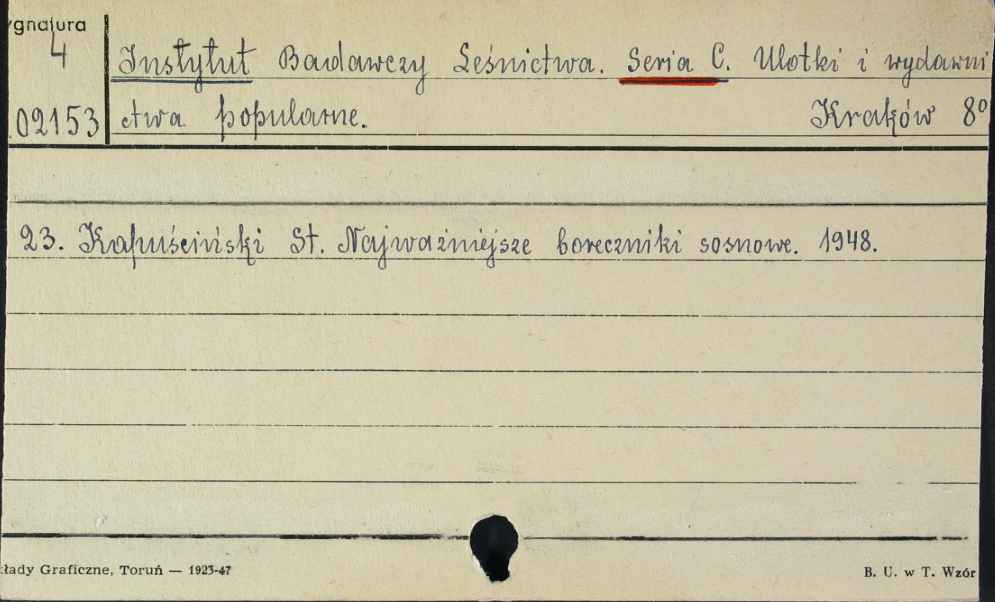 ygnatura
4
Instytut Badawczy Leśnictwa. Seria C. Ulotki i wydawni
02153 ctwa popularne. Kraków 8º
23. Kapuściński St. Najważniejsze boreczniki sosnowe. 1948.
kłady Graficzne, Toruń — 1923-47
B. U. w T. Wzór